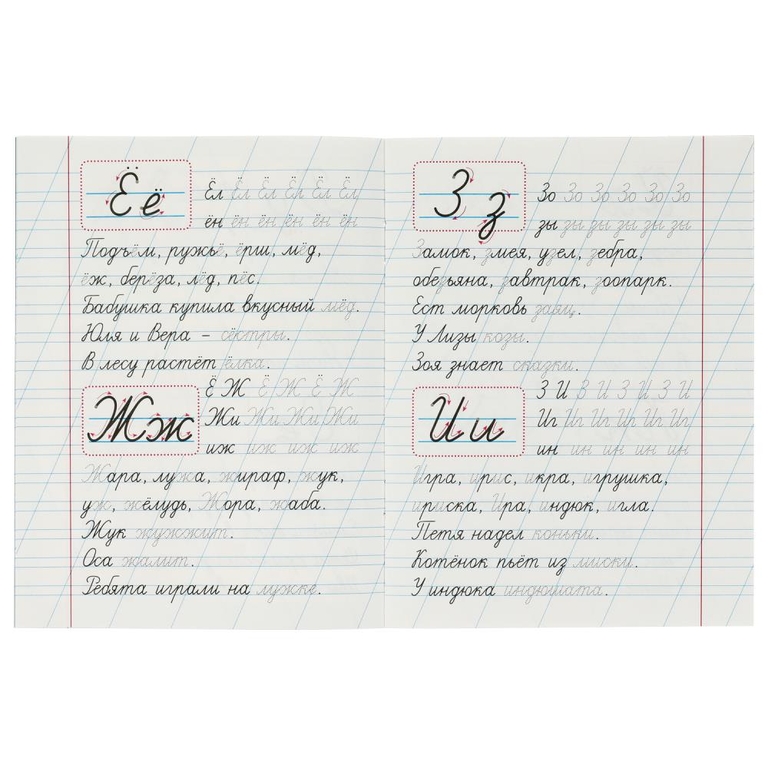 Ёё
Ёл Ёл Ёл Ёл Ёл Ёл
ён ён ён ён ён ён
Подъём, ружьё, ёрш, мёд,
ёж, берёза, лёд, пёс.
Бабушка купила вкусный мёд.
Юля и Вера – сёстры.
В лесу растёт ёлка.
Жж
Ё Ж Ё Ж Ё Ж
Жи Жи Жи Жи
иж иж иж иж
Жара, лужа, жираф, жук,
уж, жёлудь, Жора, жаба.
Жук жужжит.
Оса жалит.
Ребята играли на лужке.
Зз
Зо Зо Зо Зо Зо Зо
зы зы зы зы зы зы
Замок, змея, узел, зебра,
обезьяна, завтрак, зоопарк.
Ест морковь заяц.
У Лизы козы.
Зоя знает сказки.
Ии
З И З И З И З И
Иг Иг Иг Иг Иг Иг
ин ин ин ин ин
Игра, ирис, икра, игрушка,
ириска, Ира, индюк, игла.
Петя надел коньки.
Котёнок пьёт из миски.
У индюка индюшата.